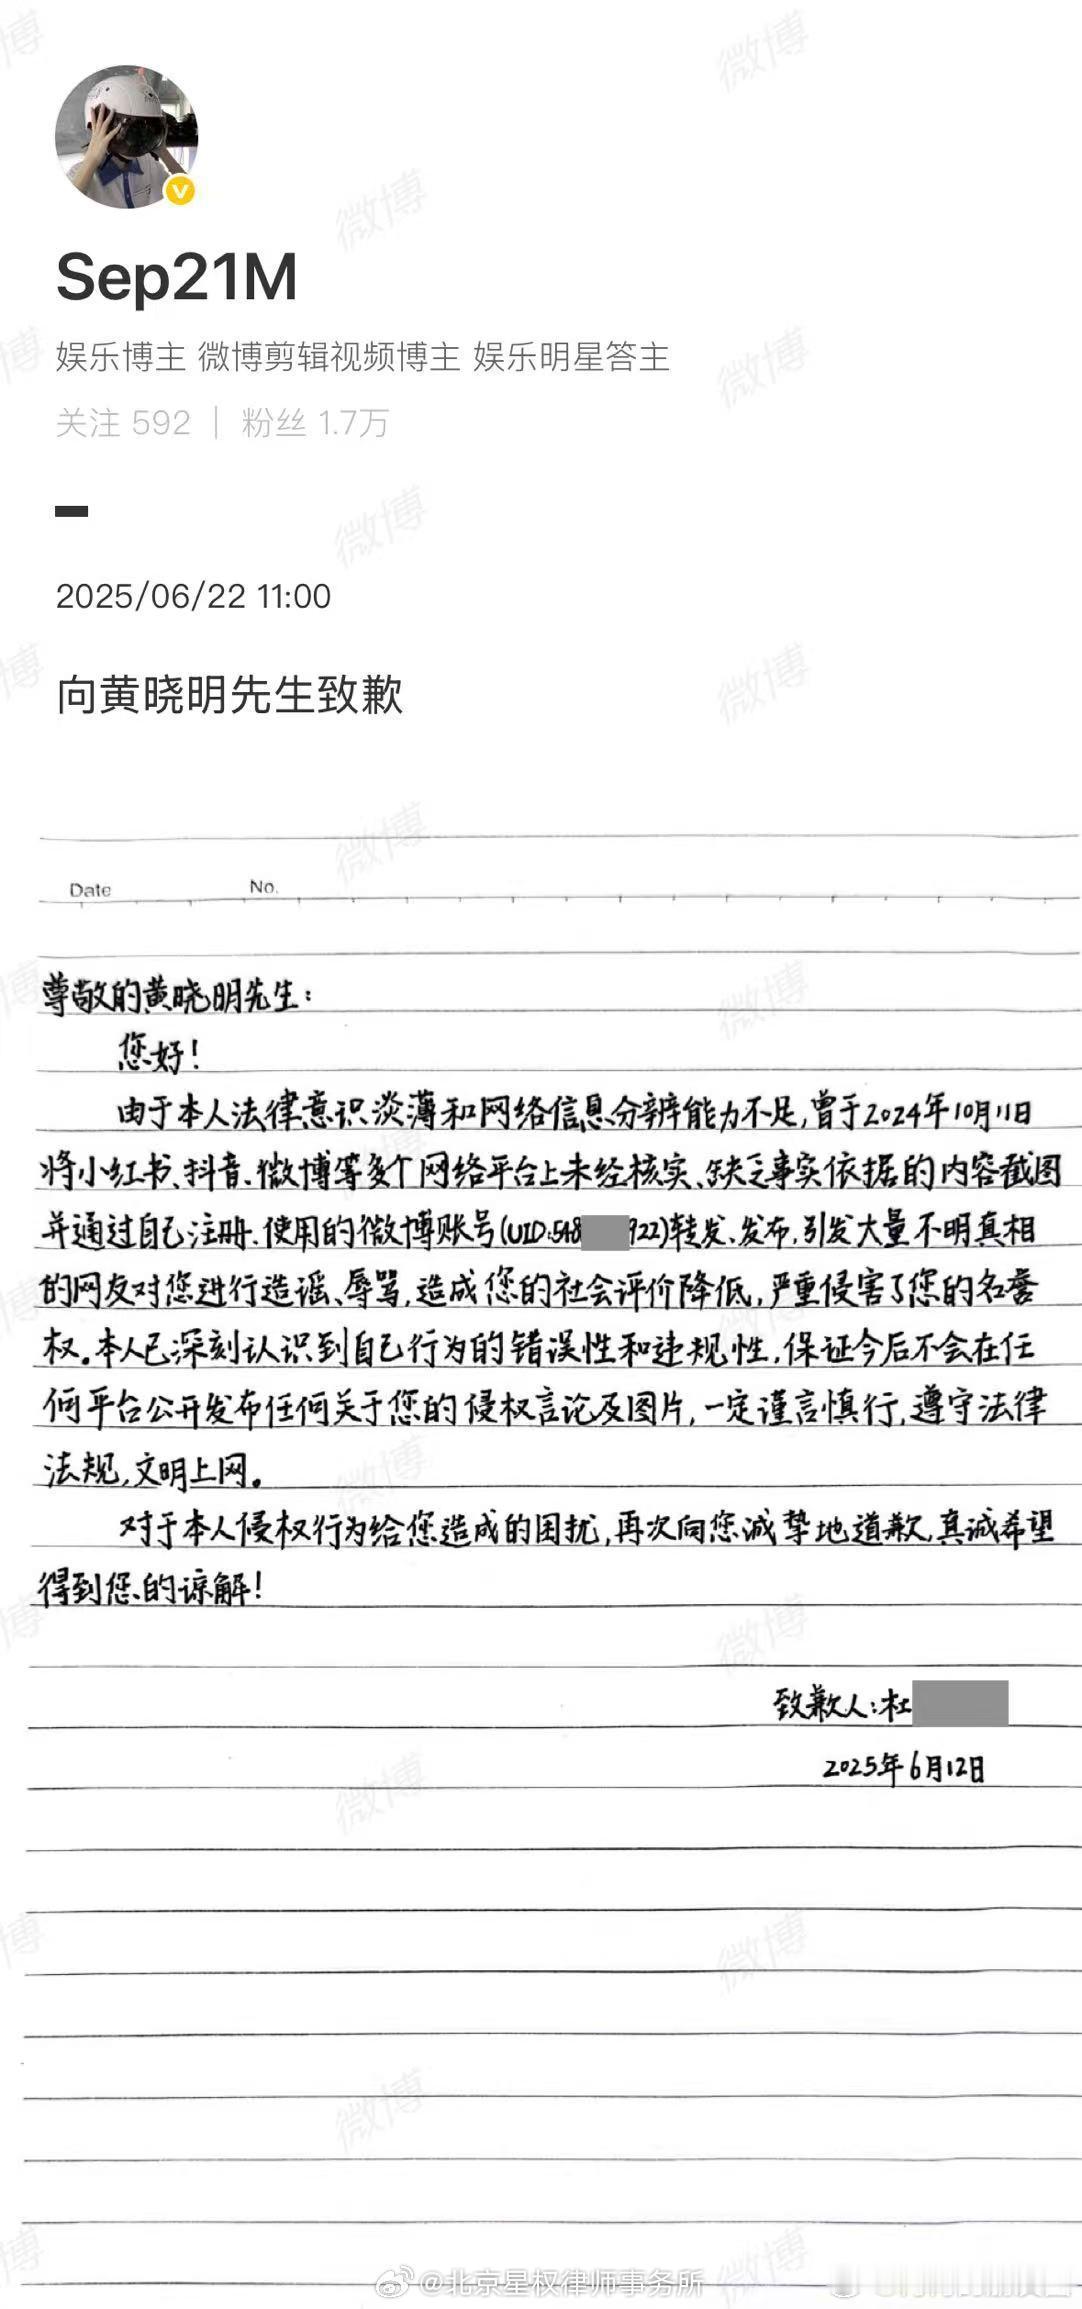 Sep21M
娱乐博主 微博剪辑视频博主 娱乐明星答主
关注 592 | 粉丝 1.7万
2025/06/22 11:00
向黄晓明先生致歉
Date No.
尊敬的黄晓明先生:
您好!
由于本人法律意识淡薄和网络信息分辨能力不足,曾于2024年10月11日
将小红书、抖音、微博等多个网络平台上未经核实、缺乏事实依据的内容截图
并通过自己注册、使用的微博账号(UID:548 922)转发、发布,引发大量不明真相
的网友对您进行造谣、辱骂,造成您的社会评价降低,严重侵害了您的名誉
权。本人已深刻认识到自己行为的错误性和违规性,保证今后不会在任
何平台公开发布任何关于您的侵权言论及图片,一定谨言慎行,遵守法律
法规,文明上网。
对于本人侵权行为给您造成的困扰,再次向您诚挚地道歉,真诚希望
得到您的谅解!
致歉人:杜
2025年6月12日
@北京星权律师事务所